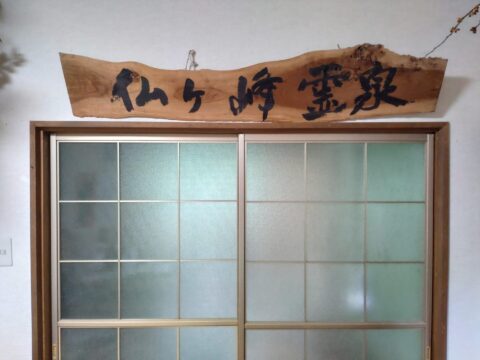 仙ヶ峰霊泉